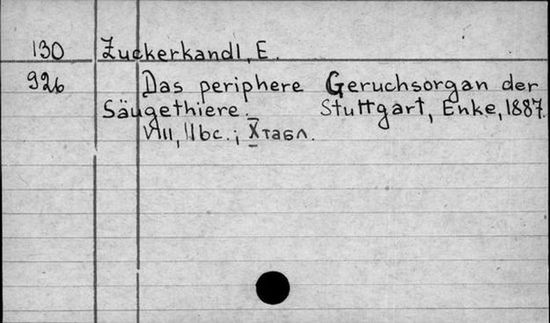 130 Zuckerkandl, E.
926 Das periphere Geruchsorgan der
Säugethiere. Stuttgart, Enke, 1887.
VIII, 116c.; X табл.